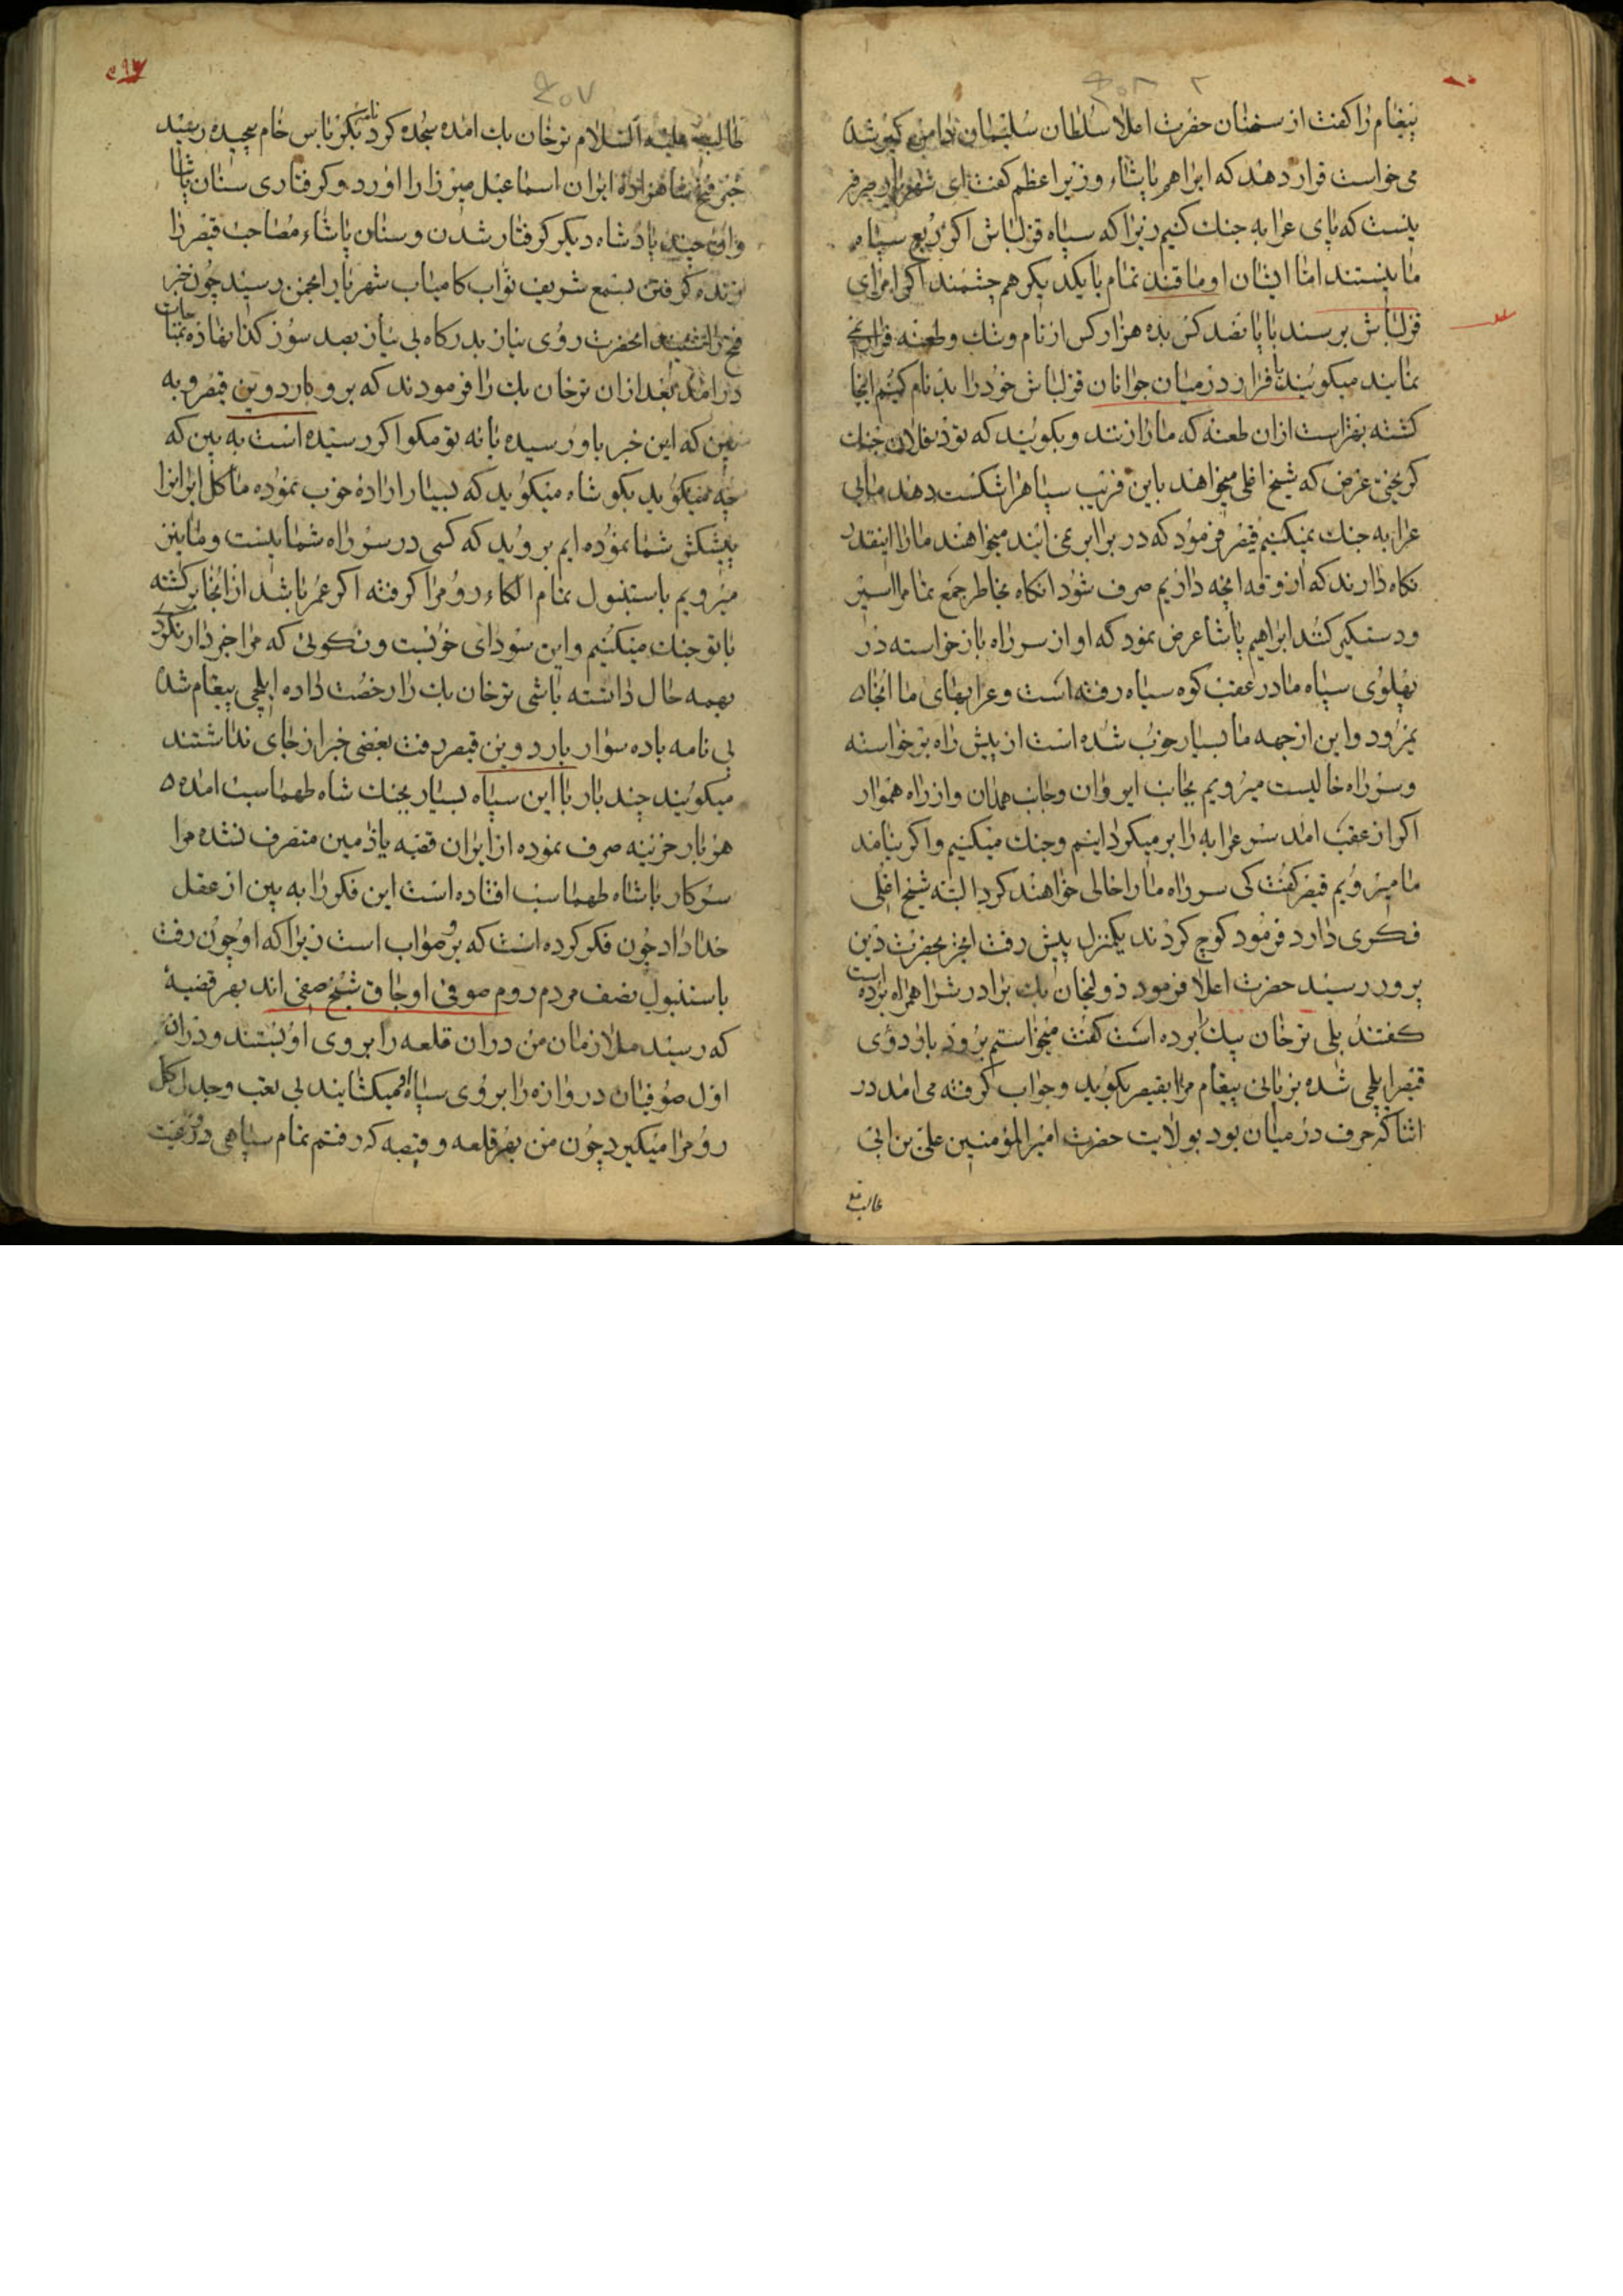 پیغام را گفت از سخنان حضرت اعلا سلطان سلیمان دامن گیر شد
می خواست قرار دهد که ابراهیم پاشاء وزیر اعظم گفت ای شهریار صرفه
نیست که پای عرابه جنك کنیم زیرا که سپاه قزلباش اکر ربع سپاه
ما نیستند اما ایشان اوماقند تمام با یکدیکر هم چشمند اکر امرای
قزلباش برسند با پانصد کس بده هزار کس از نام و ننك و طعنه قرار
نمایند میکویند فرار در میان جوانان قزلباش خود را بدنام کنیم اینجا
کشته بهتر است ازان طعنه که ما را زنند و بکویند که تو در فلان جنك
کریختی غرض که شیخ اغلی میخواهد باین فریب سپاهرا شکست دهد
عرابه جنك نمیکنیم قیصر فرمود که در برابر نمی ایند میخواهند ما را اینقدر
نکاه دارند که آزوقه انچه داریم صرف شود انکاه بخاطر جمع تمام را اسیر
و دستکیر کنند ابراهیم پاشا عرض نمود که او از سر راه باز خواسته در
پهلوی سپاه ما در عقب کوه سیاه رفته است و عرابهای ما انجا
نمیرود و این از جهه ما بسیار خوب شده است از پیش راه برخواسته
و سر راه خالیست میرویم بجانب ابروان و جانب همدان و از راه هموار
اکر از عقب امد سر عرابه را بر میکردانیم و جنك میکنیم و اکر نیامد
ما میرویم قیصر کفت کی سر راه ما را خالی خواهند کرد البته شیخ اغلی
فکری دارد فرمود کوچ کردند یکمنزل پیش رفت انجز بحضرت دین
پرور رسید حضرت اعلا فرمود ذولخان بك برادرش را همراه برده است
کفتند بلی ترخان بیك برده است کفت میخواستم برود باردوی
قیصر ایلچی شده بزبانی پیغام مرا بقیصر بکوید و جواب کرفته می امد در
اثنا که حرف در میان بود بولایت حضرت امیرالمؤمنین علی بن ابی
طالب
۵۰۷
طالب علیه السلام ترخان بك امده سجده کرد بکو نامه یاس خام پیچیده رسید
خبر فتح شاهزاده ایران اسماعیل میرزا را اورد و کرفتاری سنان پاشا
و ان چند پادشاه دیکر کرفتار شدن و سنان پاشاء مصاحب قیصر را
زنده کرفتن بسمع شریف نواب کامیاب شهریار انجمن رسید چون خبر
فتح را شنید انحضرت روی نیاز بدرکاه بی نیاز بصد سوز کداز نهاده بمناجات
در امد بعد ازان ترخان بك را فرمودند که برو باردوی قیصر و به
بین که این خبر باو رسیده یا نه تو مکو اکر رسیده است به بین که
چه میکوید بکو شاه میکوید که بسیار اراده خوب نموده ما کل ایرانرا
پیشکش شما نموده ایم بروید که کسی در سر راه شما نیست و ما نیز
میرویم باستنبول تمام الکاء روم را کرفته اکر عمر باشد از انجا برکشته
با تو جنك میکنیم و این سودای خوبست و نکوئی که مرا خبردار نکرد
بهمه حال داشته باشی ترخان بك را رخصت داده ایلچی پیغام شد
بی نامه با ده سوار باردوی قیصر رفت بعضی خبر از جای نداشتند
میکویند چند بار با این سپاه بسیار بجنك شاه طهماسب امده
هر بار خزینه صرف نموده از ایران قضبه یا زمین متصرف نشده مرا
سر کار با شاه طهماسب افتاده است این فکر را به بین از عقل
خداداد چون فکر کرده است که بر صواب است زیرا که او چون رفت
باستنبول نصف مردم روم صوفی اوجاق شیخ صفی اند بهر قضبهٔ
که رسید ملازمان من دران قلعه را بروی او بستند و دران
اول صوفیان دروازه را بروی سپاه او میکشایند بی تعب و جدل کل
روم را میکیرد چون من بهر قلعه و قصبه که رفتم تمام سپاهی و رعیت